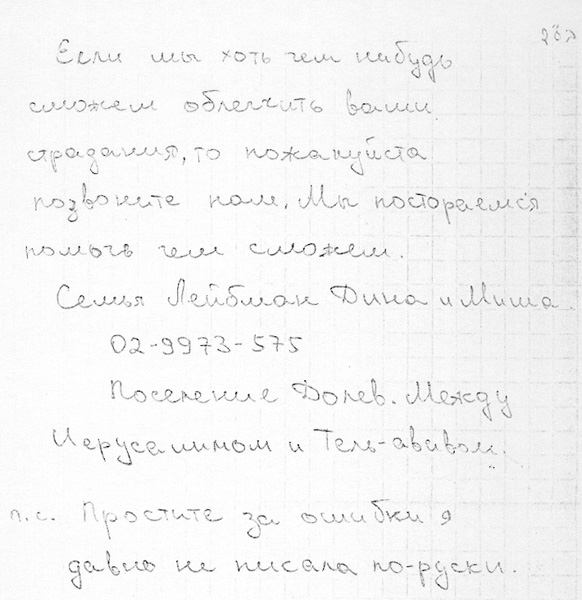 Если мы хоть чем нибудь
сможем облегчить ваши
страдания, то пожалуйста
позвоните нам. Мы постораемся
помочь чем сможем.
Семья Лейбман Дина и Миша.
02-9973-575
Поселение Долев. Между
Иерусалимом и Тель-авивом.
п.с. Простите за ошибки я
давно не писала по-руски.